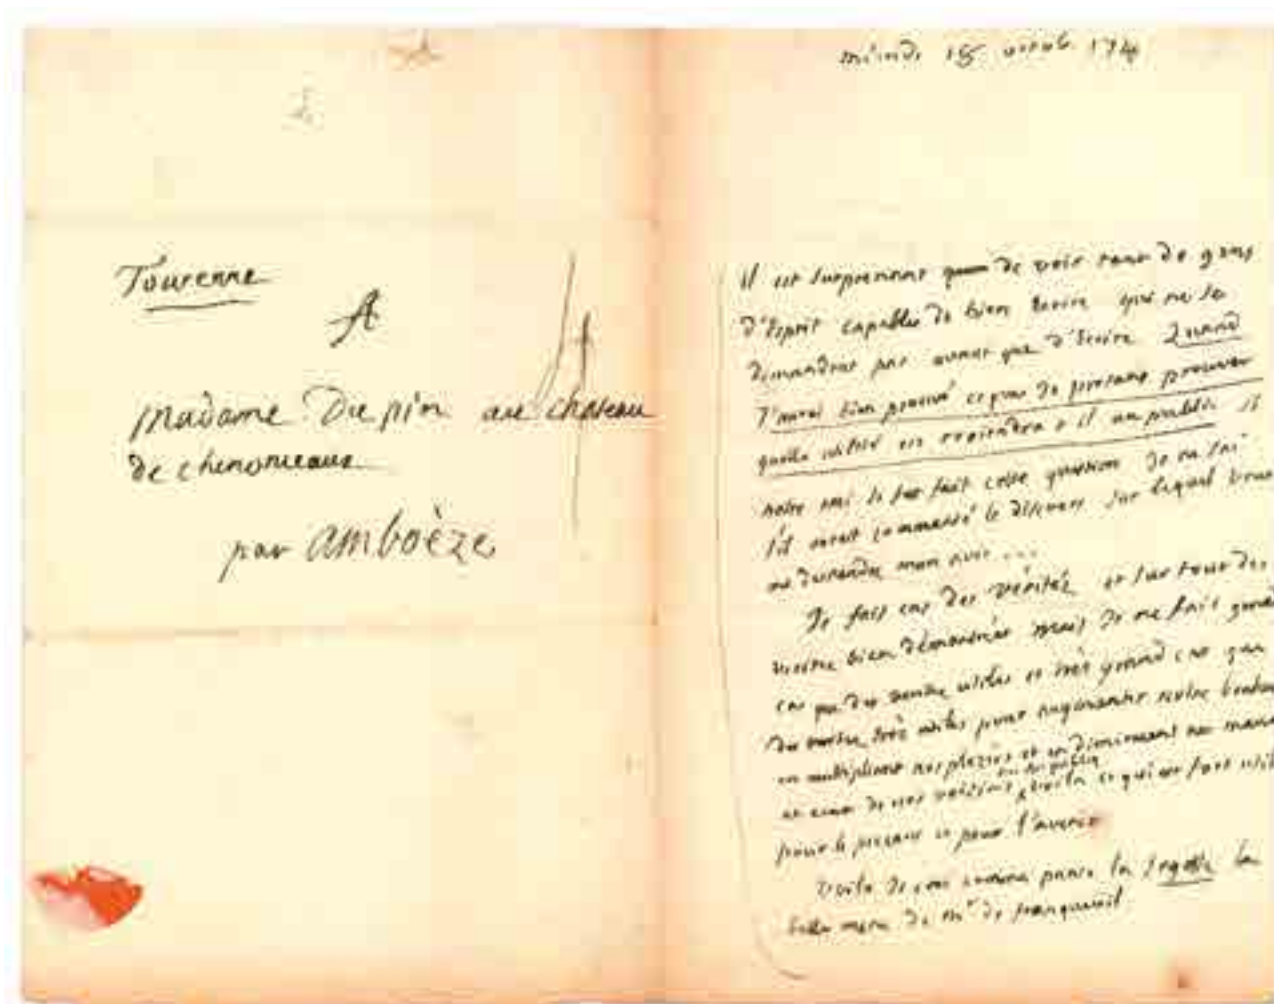 Tourenne
A
Madame Du pin au chateau
de chenonceaux
par amboèze
15 octob. 174
il est surprenant de voir tant de gens
d'Esprit capables de bien Ecrire qui ne se
demandent pas avant que d'Ecrire Quand
J'aurai bien prouvé ce que Je pretens prouver
quelle utilité en reviendra t il au public si
notre ami se fut fait cette question Je ne sai
s'il auroit commancé le discours sur lequel vous
me demandez mon avis ...
Je fais cas des vérités et sur tout des
bien démontrées mais Je ne fais grand
cas que des utiles et très grand cas que
des très utiles pour augmenter notre
en multipliant nos plezirs et en diminuant nos maux
et ceux de nos voizins voila ce qui est fort utile
pour le prezant et pour l'avenir
voila Je croi comme panse la Segesse la
belle mere de Mr de francueil